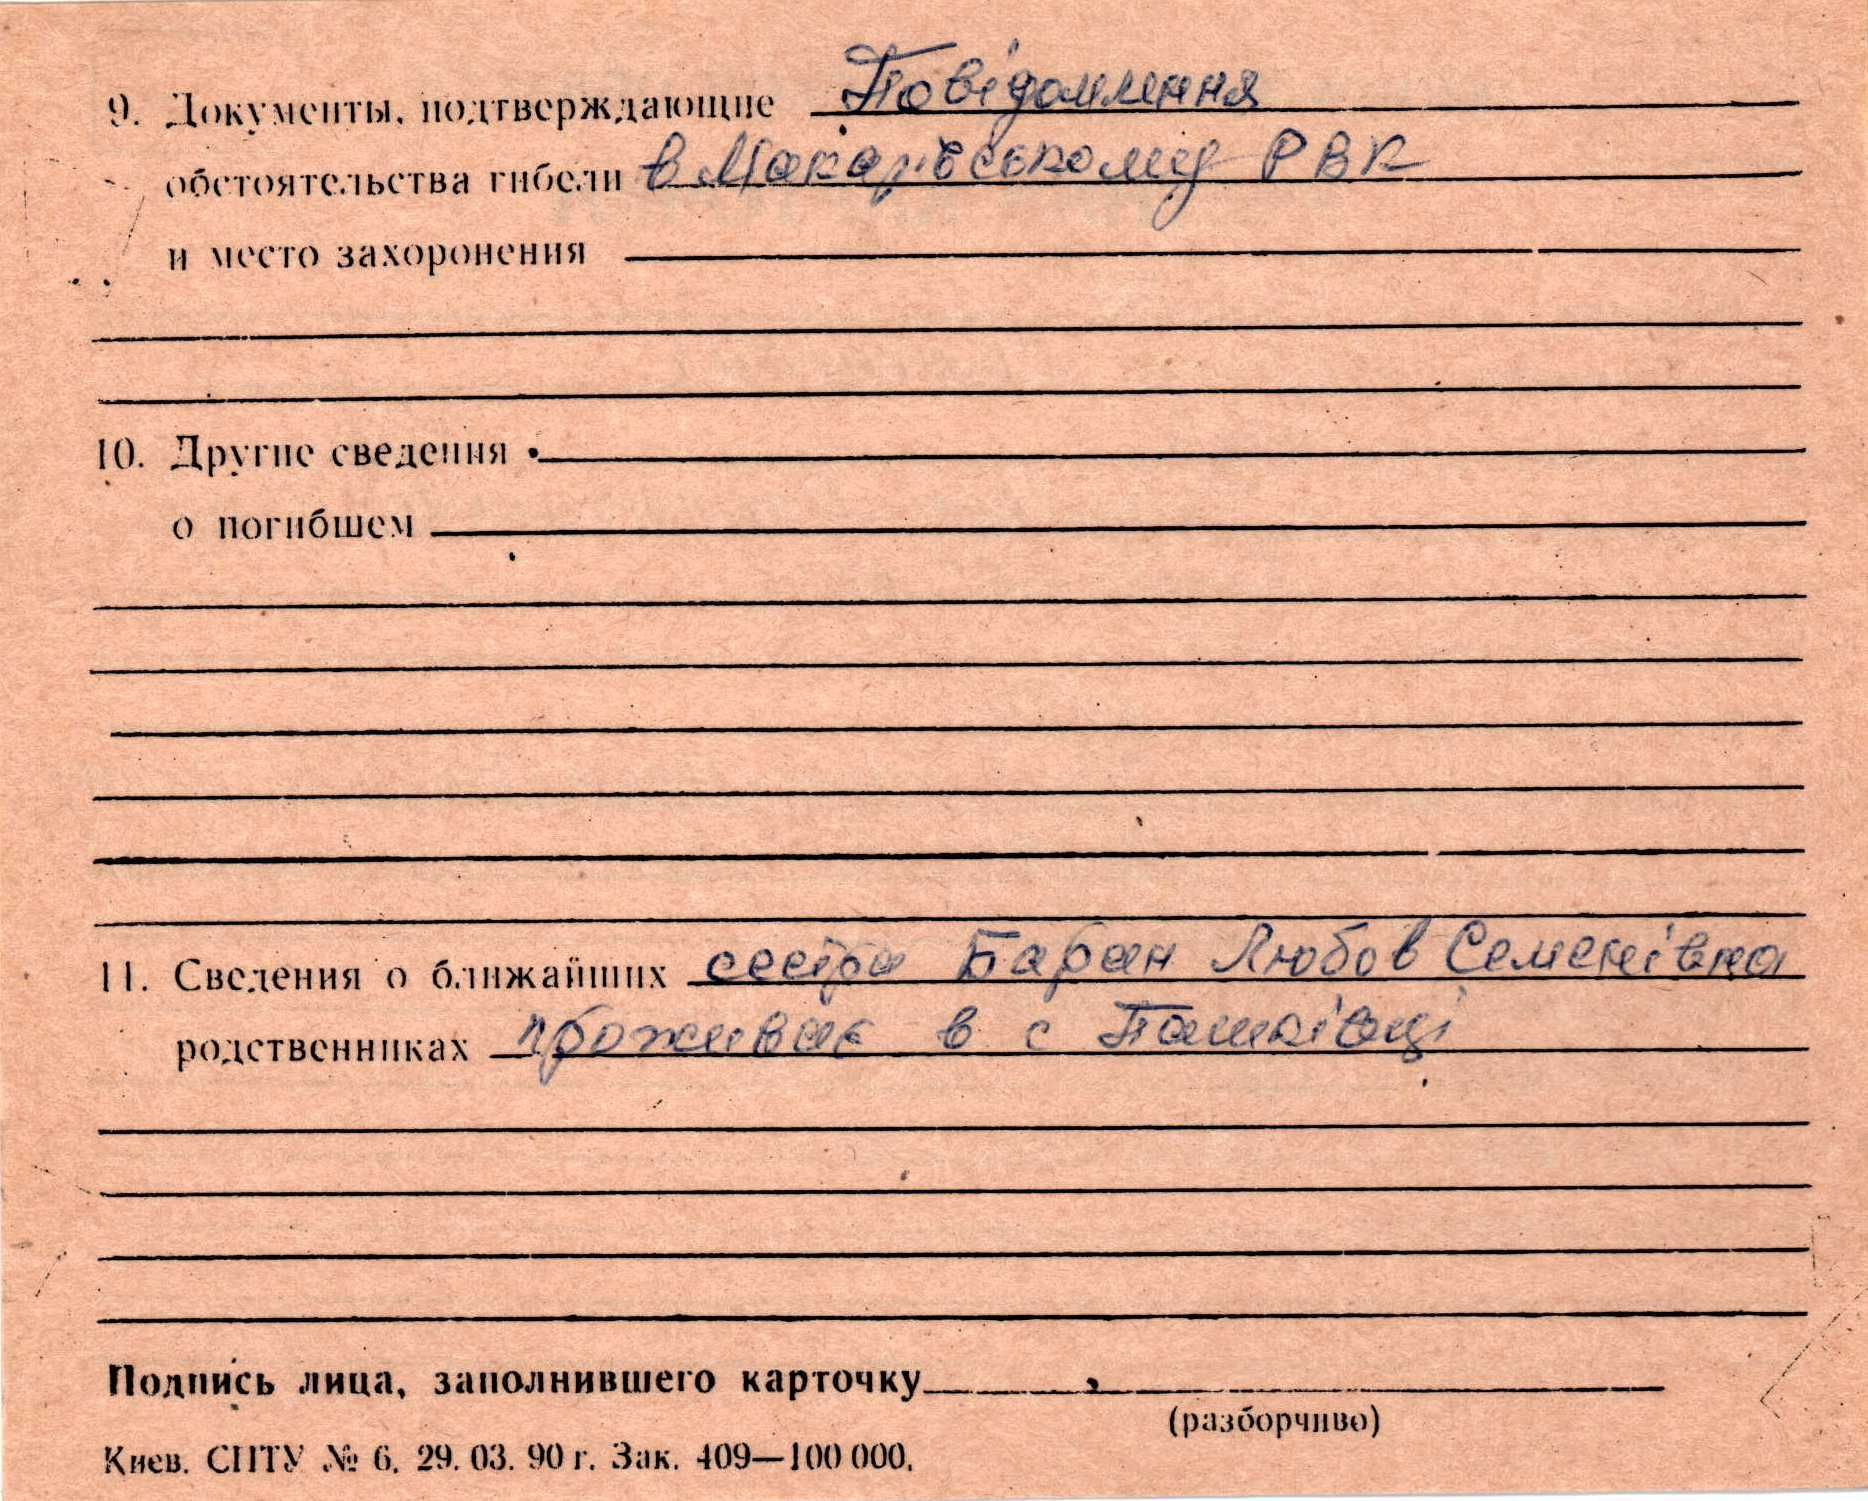 9. Документы, подтверждающие Повідомлення
обстоятельства гибели в Макарівському РВК
и место захоронения
10. Другие сведения
о погибшем
11. Сведения о ближайших сестра Баран Любов Семенівна
родственниках проживає в с Пашківці
Подпись лица, заполнившего карточку
(разборчиво)
Киев. СПТУ № 6. 29. 03. 90 г. Зак. 409—100 000.